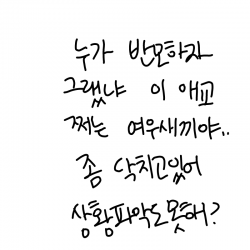 누가 반모하자
그랬냐 이 애교
쩌는 여우새끼야..
좀 닥치고있어
상황파악도못해?